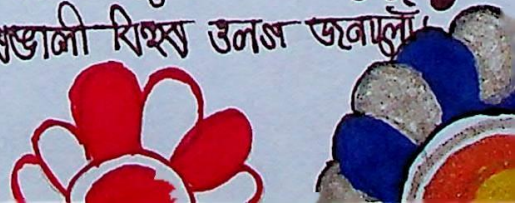 ৰঙালী বিহুৰ ওলগ জনালোঁ